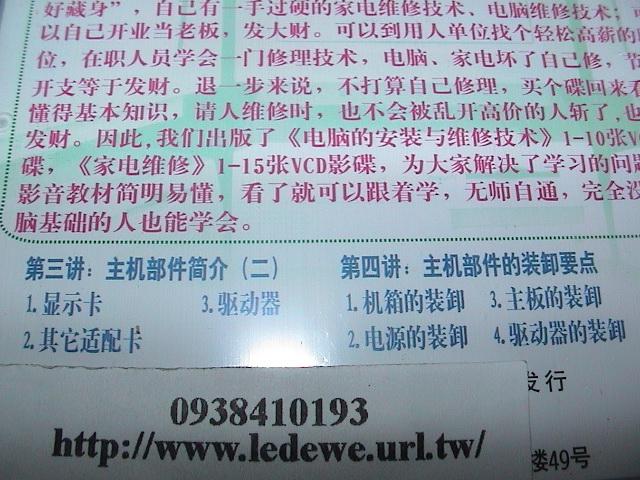 好藏身”，自己有一手过硬的家电维修技术、电脑维修技术；
以自己开业当老板，发大财。可以到用人单位找个轻松高薪的
位，在职人员学会一门修理技术，电脑、家电坏了自己修，节
开支等于发财。退一步来说，不打算自己修理，买个碟回来看
懂得基本知识，请人维修时，也不会被乱开高价的人斩了，也
发财。因此，我们出版了《电脑的安装与维修技术》1-10张VC
碟，《家电维修》1-15张VCD影碟，为大家解决了学习的问题
影音教材简明易懂，看了就可以跟着学，无师自通，完全没
脑基础的人也能学会。
第三讲：主机部件简介（二）
1.显示卡 3.驱动器
2.其它适配卡
第四讲：主机部件的装卸要点
1.机箱的装卸 3.主板的装卸
2.电源的装卸 4.驱动器的装卸
发行
楼49号
0938410193
http://www.ledewe.url.tw/